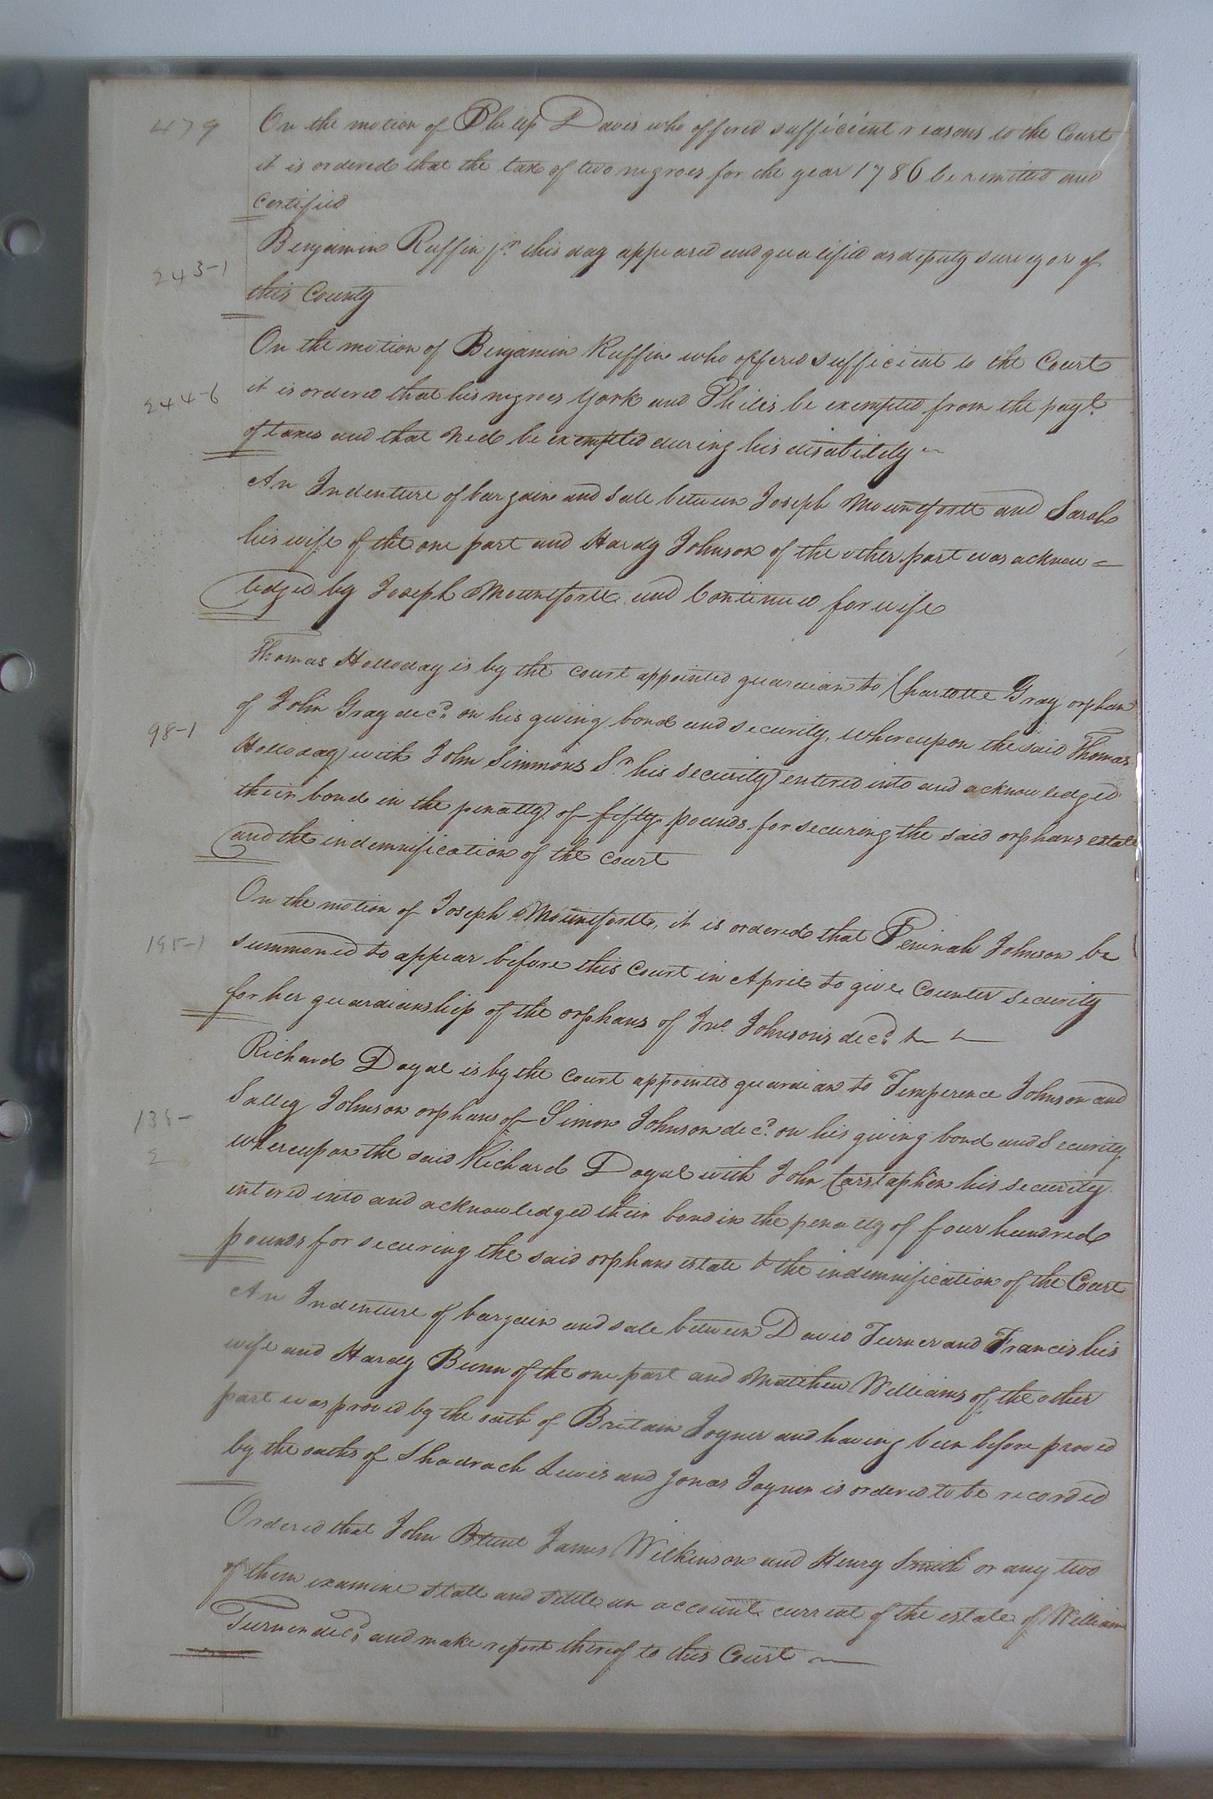 479
On the motion of Philip Davis who offered sufficient reasons to the Court
it is ordered that the tax of two negroes for the year 1786 be remitted and
certified
Benjamin Ruffin jr. this day appeared and qualified as deputy surveyor of
243-1
this County
On the motion of Benjamin Ruffin who offered sufficient to the Court
244-6
it is ordered that his negroes York and Philis be exempted from the payt.
of taxes and that Ned be exempted during his disability
An Indenture of bargain and Sale between Joseph Mountfortt and Sarah
his wife of the one part and Hardy Johnson of the other part was acknow=
ledged by Joseph Mountfortt and Continued for wife
Thomas Holloday is by the court appointed guardian to Charlotte Gray orphan
98-1
of John Gray decd. on his giving bond and security, whereupon the said Thomas
Holloday with John Simmons Sr. his security entered into and acknowledged
their bond in the penalty of fifty pounds for securing the said orphans estate
and the indemnification of the court
On the motion of Joseph Mountfortt, it is ordered that Peninah Johnson be
195-1
summoned to appear before this Court in April to give Counter security
for her guardianship of the orphans of Jno. Johnson's decd.
Richard Doyal is by the court appointed guardian to Temperence Johnson and
135-
2
Salley Johnson orphans of Simon Johnson decd. on his giving bond and Security.
whereupon the said Richard Doyal with John Carstaphen his security
intered into and acknowledged their bond in the penalty of four hundred
pounds for securing the said orphans estate & the indemnification of the Court
An Indenture of bargain and sale between David Turner and Francis his
wife and Hardy Bunn of the one part and Matthew Williams of the other
part was proved by the oath of Britain Joyner and having been before proved
by the oaths of Shadrach Lewis and Jonas Joyner is ordered to be recorded
Ordered that John Blunt James Wilkinson and Henry Smith or any two
of them examine state and settle an account current of the estate of William
Turner decd. and make report thereof to this Court